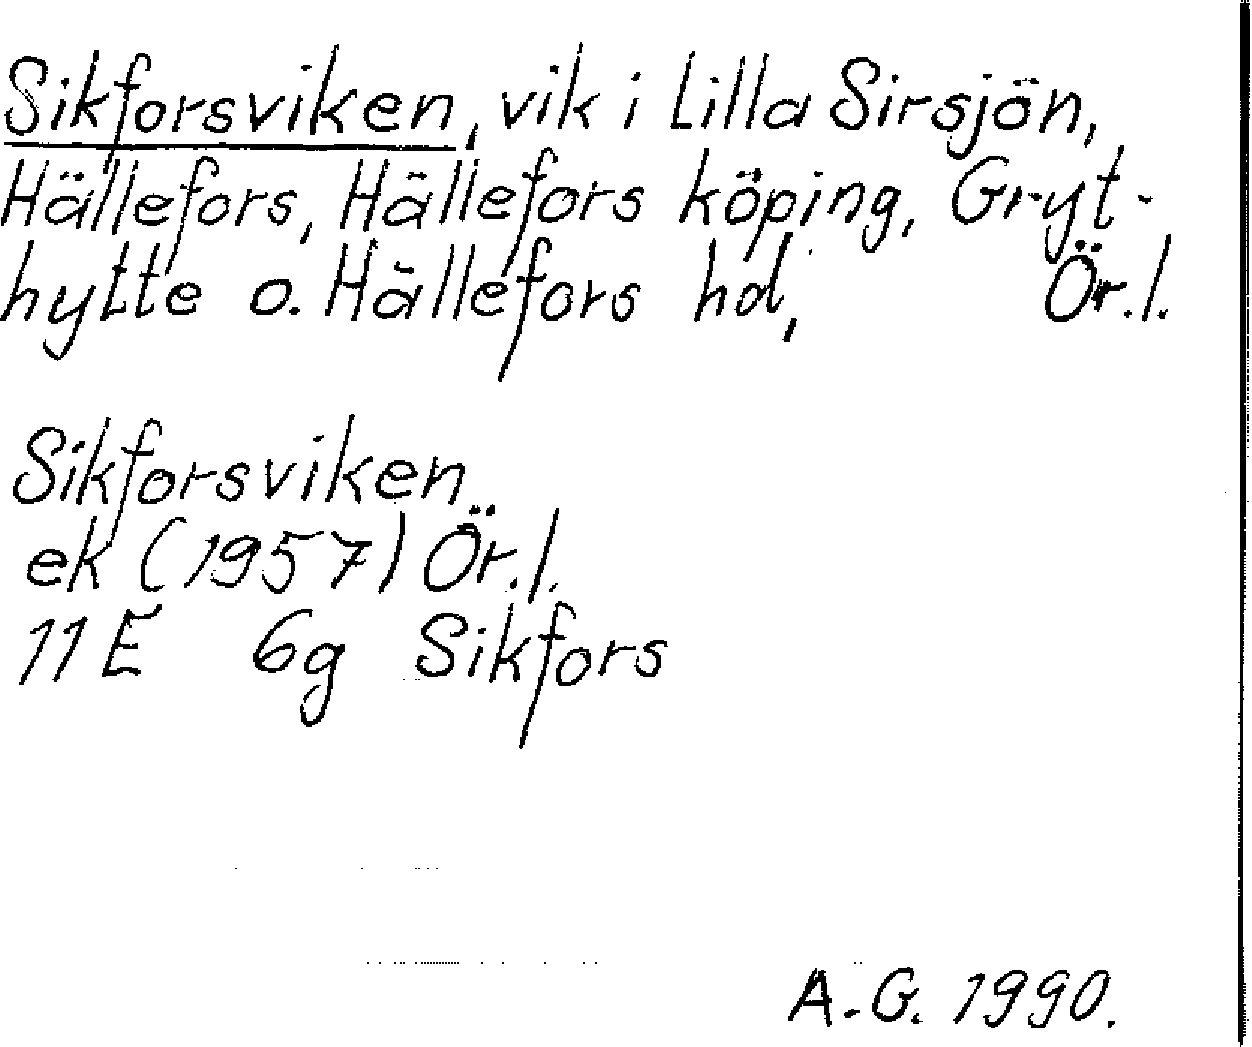 Sikforsviken, vik i Lilla Sirsjön,
Hällefors, Hällefors köping, Gryt-
hytte o. Hällefors hd, Ör.l.
Sikforsviken
ek (1957) Ör.l.
11E 6g Sikfors
A.G. 1990.